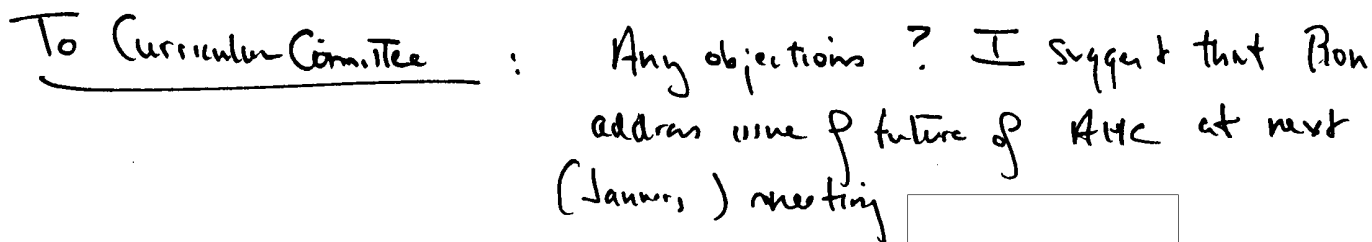 To Curriculum Committee : Any objections ? I suggest that Ron
address issue of future of AHC at next
(January) meeting